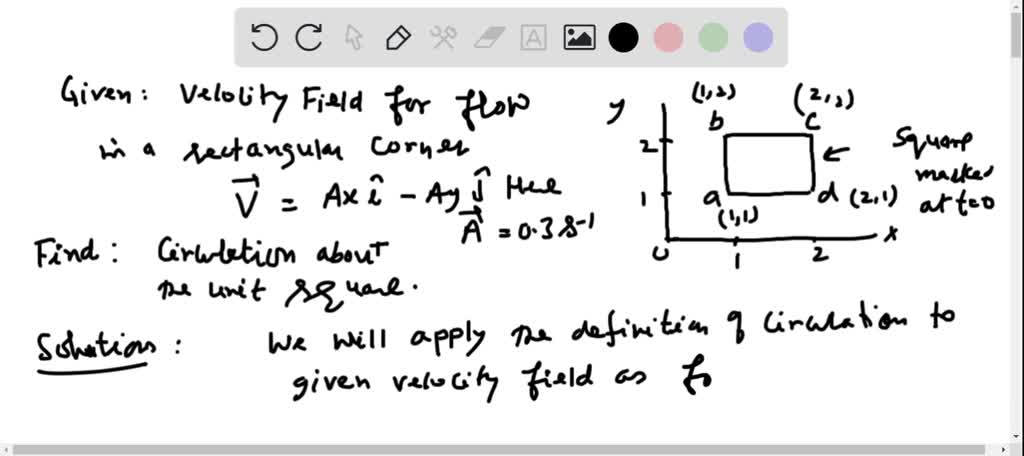 Given: Velocity Field for flow
in a rectangular Corner
V = Ax î - Ay ĵ Here
A = 0.3 s-1
Find: Circulation about
the unit square.
Solution: We will apply the definition of circulation to
given velocity field as fo
y
(1,2) (2,2)
b c
2
Square
marked
at t=0
1 a d (2,1)
(1,1)
0 1 2 x
A